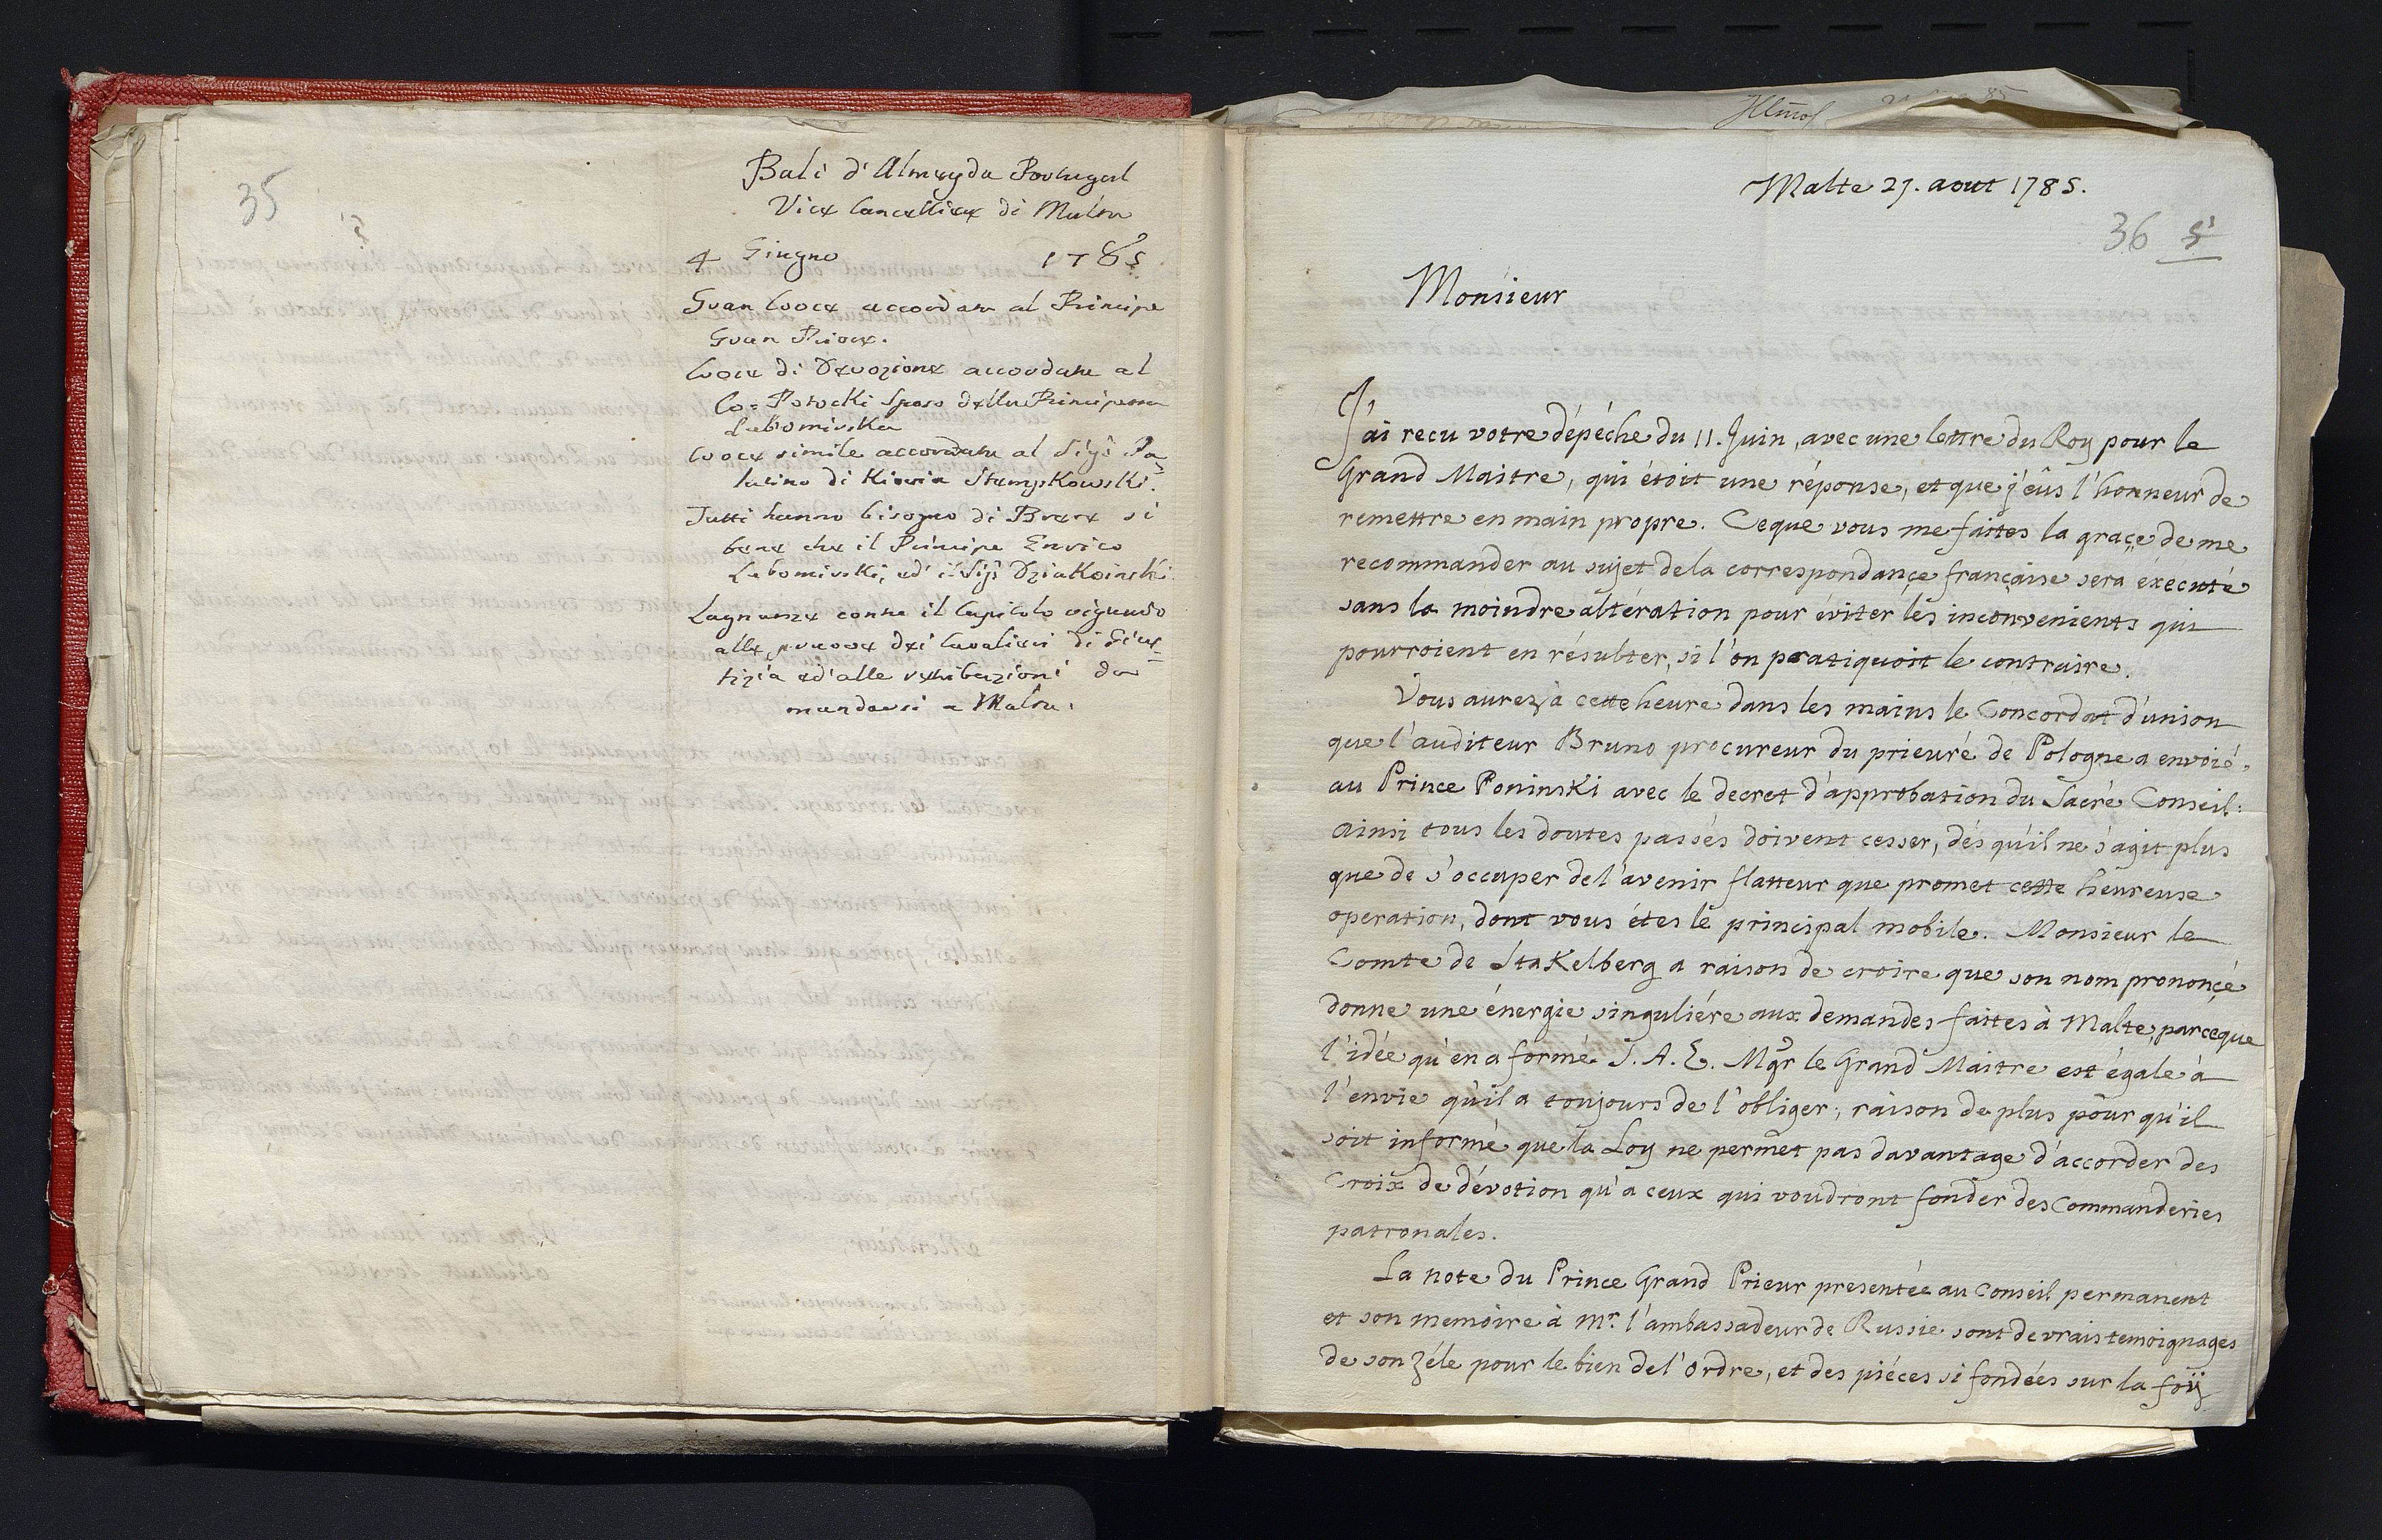 35
Bali d'Almeyda Portugal
Vice Cancelliere di Malta
4 Giugno 1785
Gran Croce accordata al Principe
Gran Priore.
Croce di Devozione accordata al
Co= Potocki Sposo della Principessa
Lubomirska
Croce simile accordata al Sigr Pa=
latino di Kiovia Stempkowski.
Tutti hanno bisogno di Breve si
bene che il Principe Enrico
Lubomirski, ed' il Sigr Dziakoinski.
Lagnanze contro il Capitolo riguardo
alle prove dei Cavalieri di Gius=
tizia ed' alle retribuzioni da
mandarsi a Malta.
Malte 27. aout 1785.
36 5
Monsieur
J'ai recu votre dépéche du 11. Juin, avec une lettre du Roy pour le
Grand Maitre, qui étoit une réponse, et que j'eûs l'honneur de
remettre en main propre. Ce que vous me faites la graçe de me
recommander au sujet de la correspondançe françaìse sera éxecuté
sans la moindre altération pour éviter lés inconvenients qui
pourroient en résulter, si l'on pratiquoit le contraire.
Vous aurez à cette heure dans les mains le Concordat d'union
que l'auditeur Bruno procureur du prieuré de Pologne a envoié
au Prince Poninski avec le decret d'approbation du Sacré Conseil:
ainsi tous les doutes passés doivent cesser, dés qu'il ne s'agit plus
que de s'occuper de l'avenir flatteur que promet cette heureuse
operation, dont vous étes le principal mobile. Monsieur le
Comte de Stakelberg a raison de croire que son nom prononçé
donne une énergie singuliére aux demandes faites à Malte, parceque
l'idée qu'en a formé S. A. E. Mgr le Grand Maitre est égale à
l'envie qu'il a toujours de l'obliger; raison de plus pour qu'il
soit informé que la Loy ne permet pas davantage d'accorder des
Croix de dévotion qu'a ceux qui voudront fonder des Commanderies
patronales.
La note du Prince Grand Prieur presentée au Conseil permanent
et son memoire à Mr. l'ambassadeur de Russie sont de vrais temoignages
de son zéle pour le bien de l'Ordre, et des piéces si fondées sur la foÿ